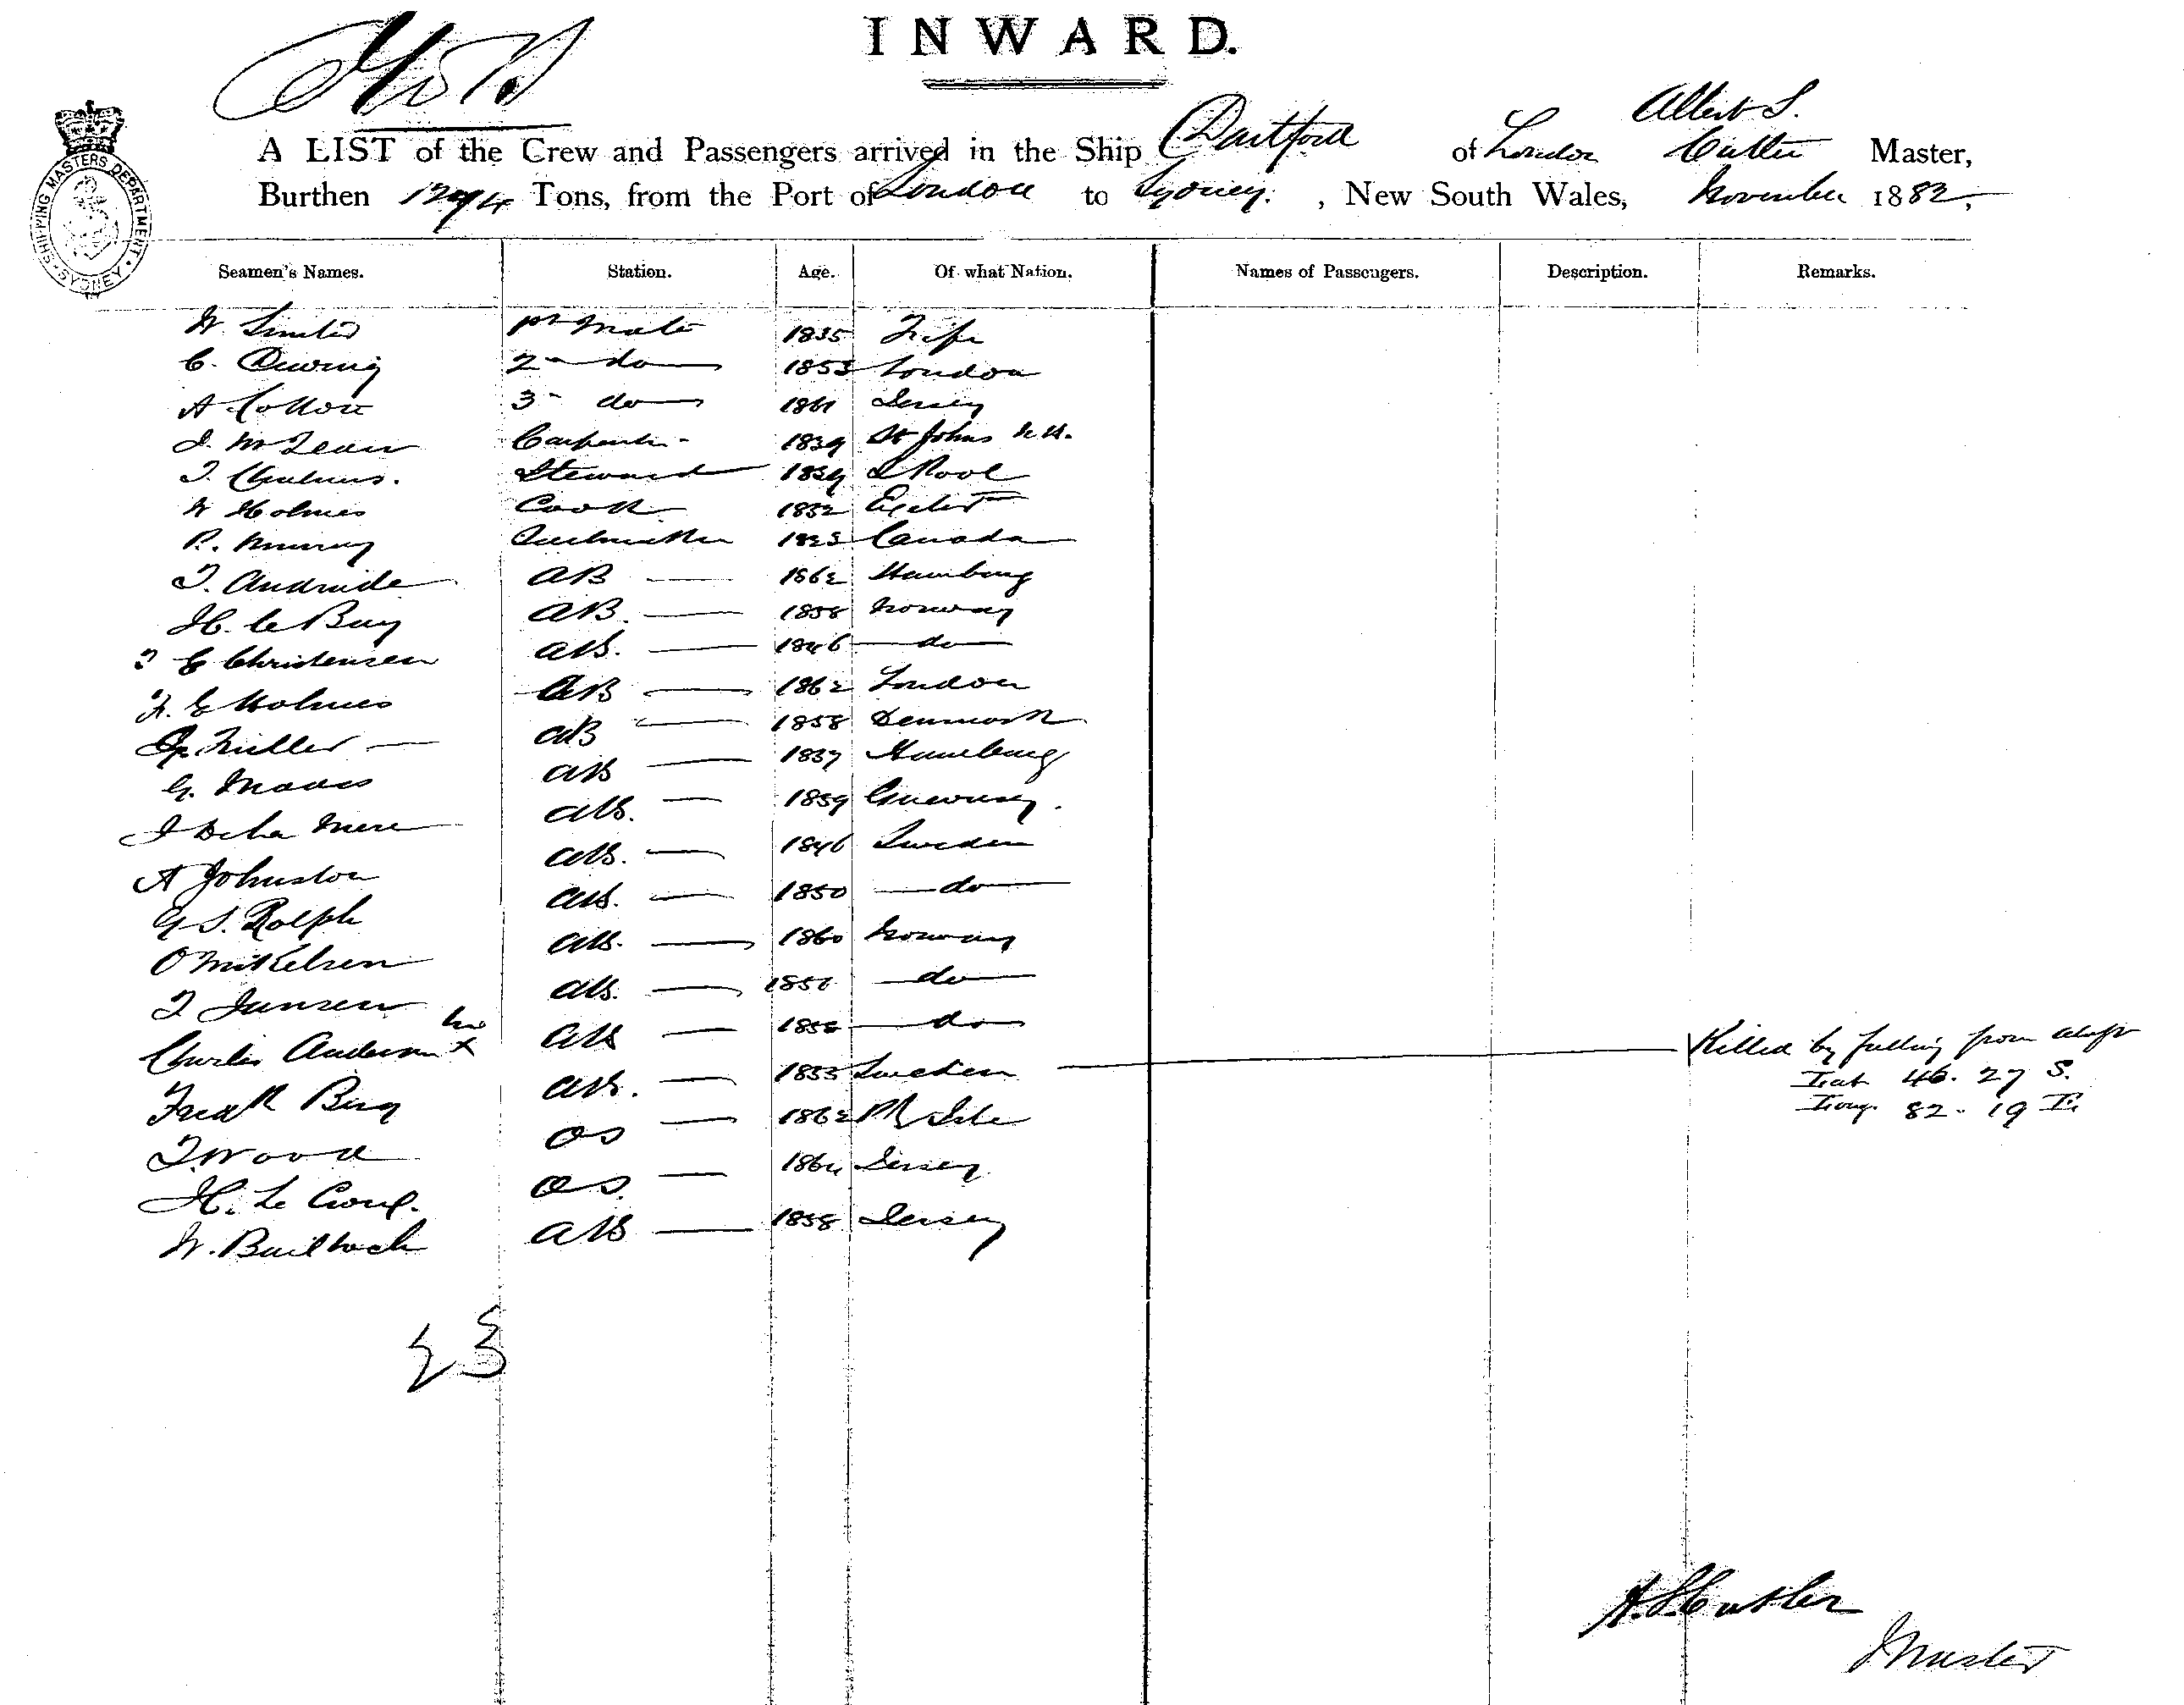 INWARD.
Albert S.
A LIST of the Crew and Passengers arrived in the Ship Dartford of London Cutler Master,
Burthen 1294 Tons, from the Port of London to Sydney. , New South Wales, November 1882,
SHIPPING MASTERS DEPARTMENT SYDNEY
Seamen's Names. Station. Age. Of what Nation. Names of Passengers. Description. Remarks.
W. 1st Mate 1835 Fife
C. 2nd do 1853 London
A 3 do 1861 Jersey
J. McLean Carpenter 1839 St Johns
Steward LPool
W Holmes Cook 1832 Exeter
R. Murray Sailmaker Canada
AB 1862 Hamburg
H. Le Buy AB. 1858 Norway
Christensen AB. 1846 do
F. E Holmes AB 1862 London
Miller AB 1858 Denmark
G. Maass AB 1837 Hamburg
J De La Mere AB. 1859 Guernsey.
A Johnston AB. 1846 Sweden
G S. Rolph AB. 1850 do
O Mikelsen AB. 1860 Norway
Jansen AB. do
Charles Anderson x AB do
Fredk Berg AB. Sweden Killed by falling from aloft
Lat 46. 27 S.
Long. 82. 19 E.
Wood OS 1862
H. Le OS. 1864 Jersey
W. AB 1858 Jersey
23
A. S. Cutler
Master